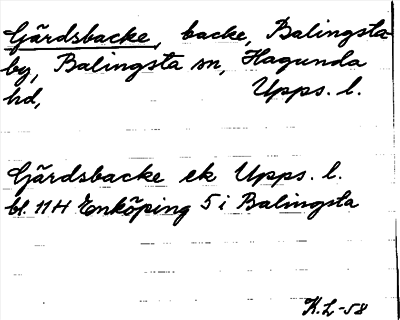 Gärdsbacke, backe, Balingsta
by, Balingsta sn, Hagunda
hd, Upps. l.
Gärdsbacke ek Upps. l.
bl. 11H Enköping 5 i Balingsta
K.L-58